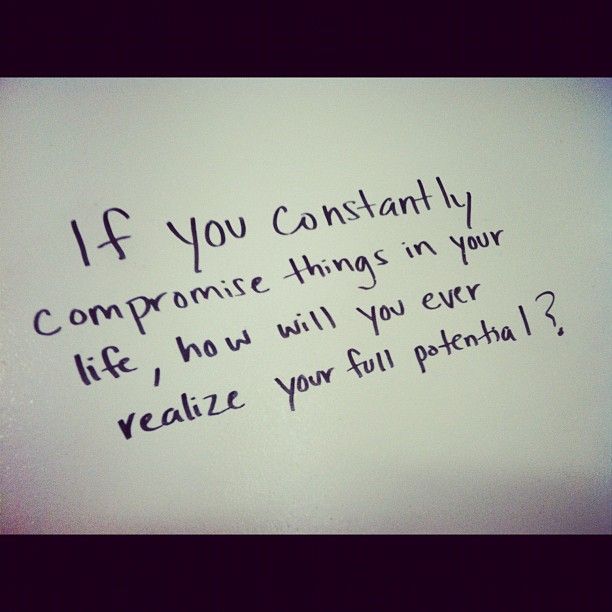 If you constantly
compromise things in your
life, how will you ever
realize your full potential?